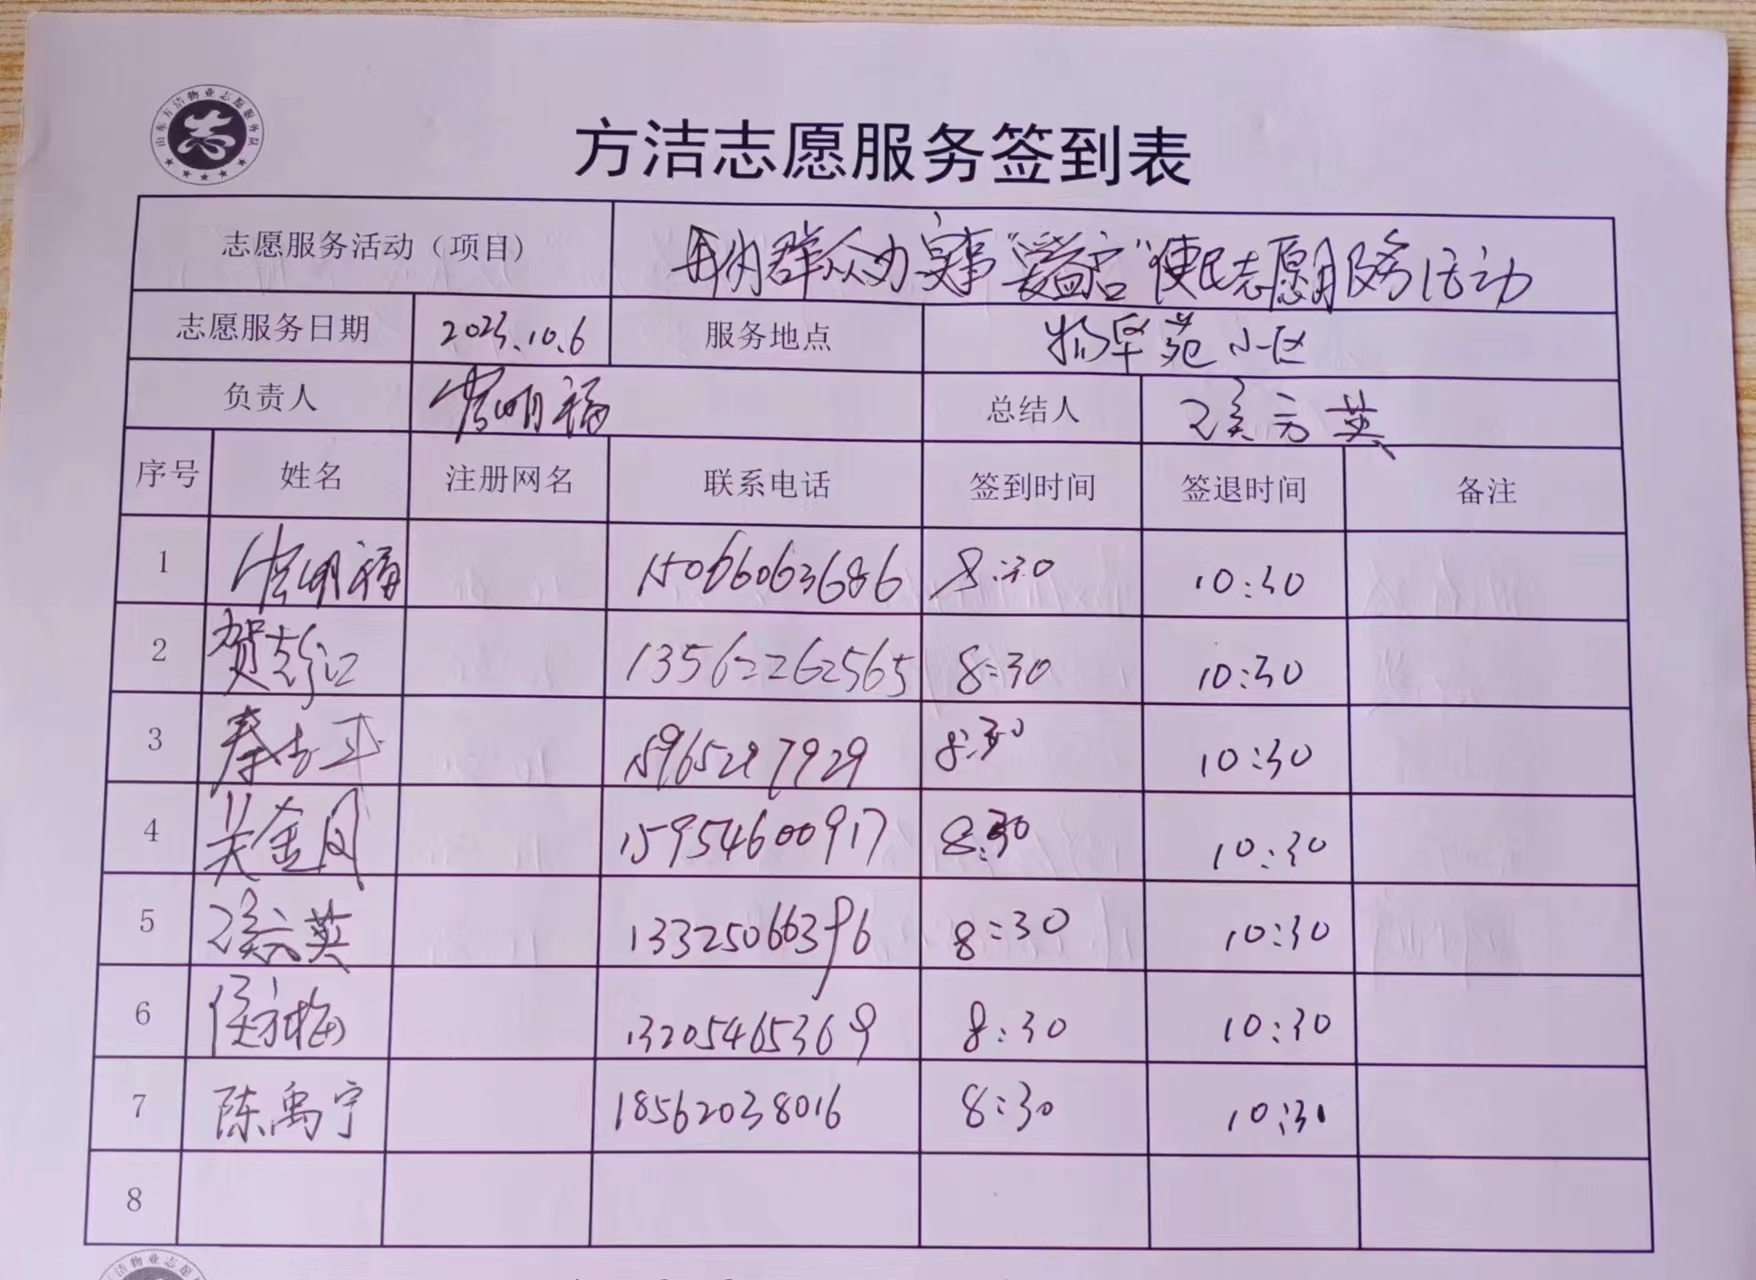 山东方洁物业志愿服务队
方洁志愿服务签到表
志愿服务活动（项目） 我为群众办实事"爱益古"便民志愿服务活动
志愿服务日期 2023.10.6 服务地点 物华苑小区
负责人 明福 总结人 英
序号 姓名 注册网名 联系电话 签到时间 签退时间 备注
1 明福 15066063686 8:30 10:30
2 贺志江 13562262565 8:30 10:30
3 秦 15965297929 8:30 10:30
4 吴金凤 15954600917 8:30 10:30
5 英 13325066396 8:30 10:30
6 侯方梅 13205465369 8:30 10:30
7 陈禹宁 18562038016 8:30 10:30
8
洁物业志愿